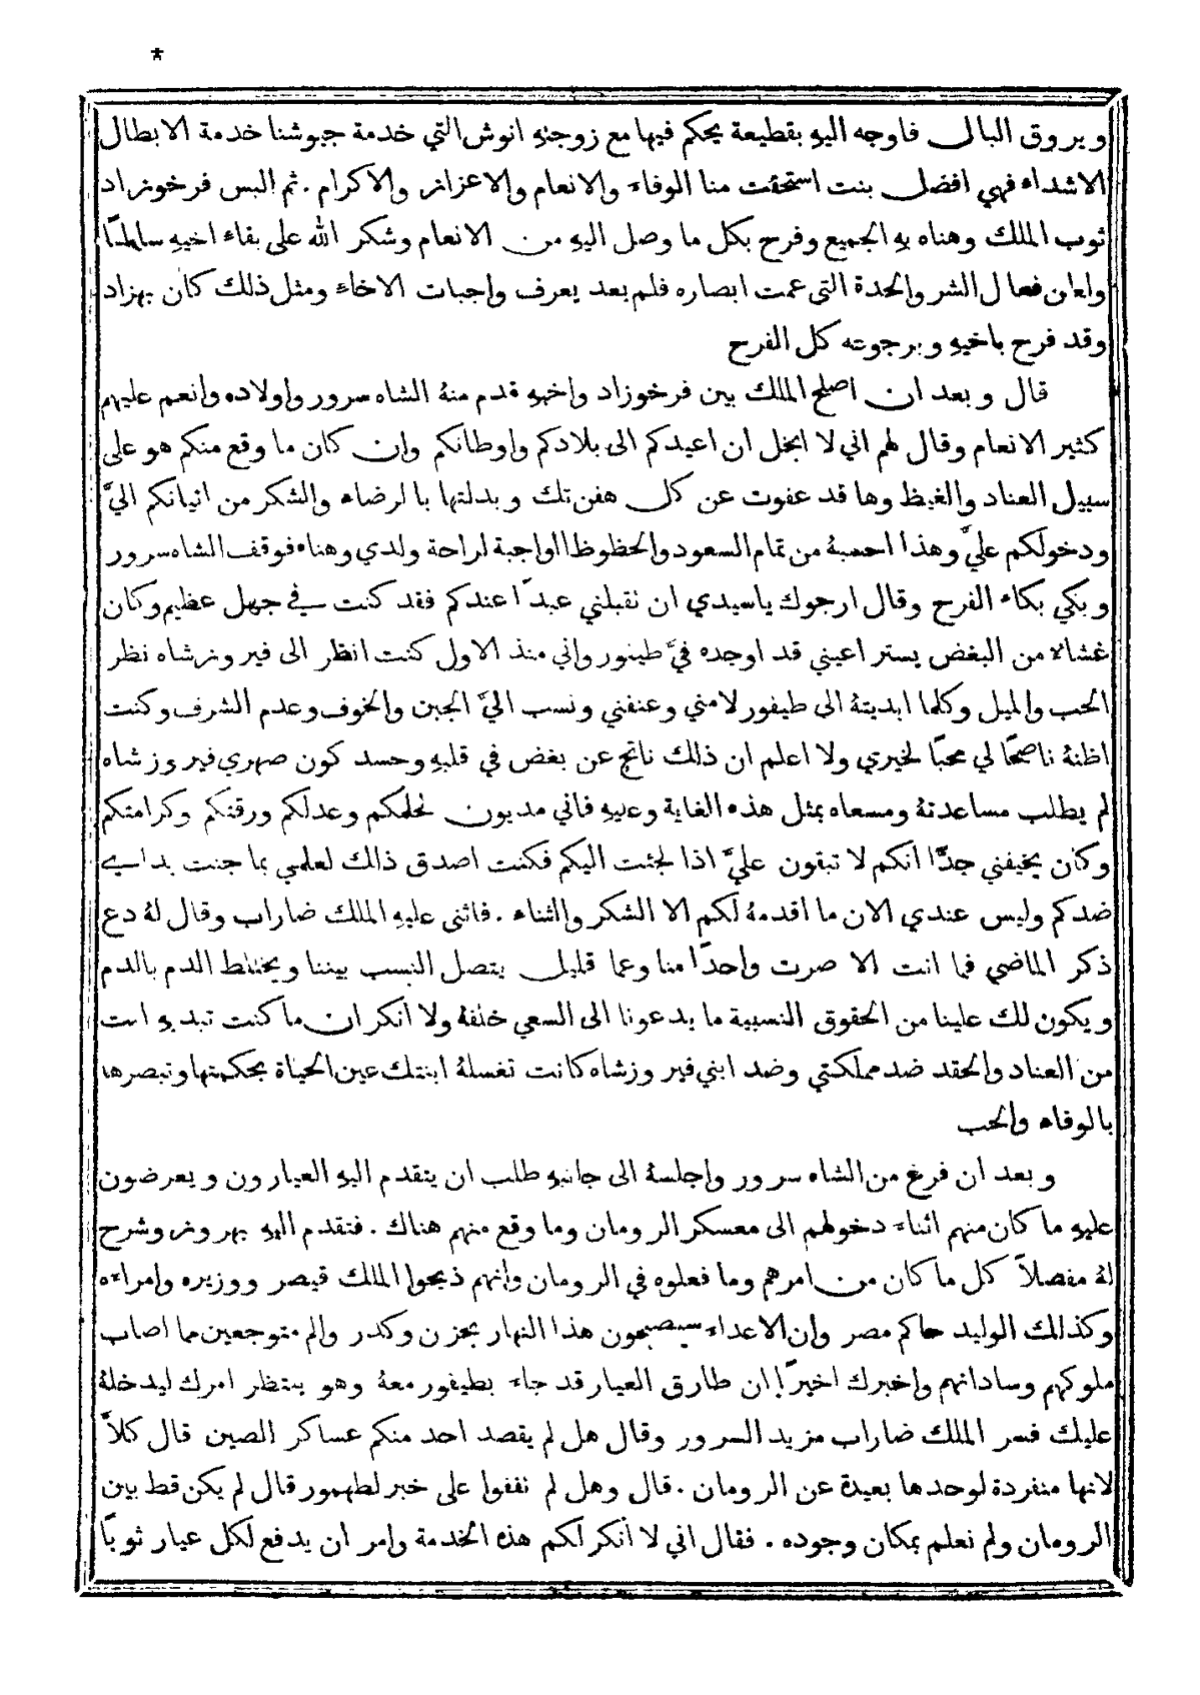 *
ويروق البال فاوجه اليهِ بقطيعة يحكم فيها مع زوجتهِ انوش التي خدمة جيوشنا خدمة الابطال
الاشداء فهي افضل بنت استحقت منا الوفاء والانعام والاعزاز والاكرام . ثم البس فرخوزاد
ثوب الملك وهناه بهِ الجميع وفرح بكل ما وصل اليهِ من الانعام وشكر الله على بقاء اخيهِ سالمًا
ولعن فعال الشر والحدة التي عمت ابصاره فلم يعد يعرف واجبات الاخاء ومثل ذلك كان بهزاد
وقد فرح باخيهِ وبرجوعه كل الفرح
قال وبعد ان اصلح الملك بين فرخوزاد واخيهِ قدم منهُ الشاه سرور واولاده وانعم عليهم
كثير الانعام وقال لهم اني لا ابخل ان اعيدكم الى بلادكم واوطانكم وان كان ما وقع منكم هو على
سبيل العناد والغيظ وها قد عفوت عن كل هفوتك وبدلتها بالرضاء والشكر من اتيانكم اليَّ
ودخولكم عليَّ وهذا احسبهُ من تمام السعود والحظوظ الواجبة لراحة ولدي وهناء فوقف الشاه سرور
وبكي بكاء الفرح وقال ارجوك ياسيدي ان تقبلني عبدًا عندكم فقد كنت في جهل عظيم وكان
غشاء من البغض يستر اعيني قد اوجده فيَّ طيفور واني منذ الاول كنت انظر الى فيروزشاه نظر
الحب والميل وكلما ابديتهُ الى طيفور لامني وعنفني ونسب اليَّ الجبن والخوف وعدم الشرف وكنت
اظنهُ ناصحًا لي محبًا لخيري ولا اعلم ان ذلك ناتج عن بغض في قلبهِ وحسد كون صهري فيروز شاه
لم يطلب مساعدتهُ ومسعاه بمثل هذه الغاية وعليهِ فاني مديون لحلمكم وعدلكم ورقتكم وكرامتكم
وكان يخيفني جدًّا انكم لا تبقون عليَّ اذا لجئت اليكم فكنت اصدق ذلك لعلمي بما جنت يداي
ضدكم وليس عندي الان ما اقدمهُ لكم الا الشكر والثناء . فاثنى عليهِ الملك ضاراب وقال لهُ دع
ذكر الماضي فما انت الا صرت واحدًا منا وعما قليل يتصل النسب بيننا ويختلط الدم بالدم
ويكون لك علينا من الحقوق النسبية ما يدعونا الى السعي خلفهُ ولا انكر ان ما كنت تبديهِ انت
من العناد والحقد ضد مملكتي وضد ابني فيروزشاه كانت تغسلهُ ابنتك عين الحياة بحكمتها وتبصرها
بالوفاء والحب
وبعد ان فرغ من الشاه سرور واجلسهُ الى جانبهِ طلب ان يتقدم اليهِ العيارون ويعرضون
عليهِ ما كان منهم اثناء دخولهم الى معسكر الرومان وما وقع منهم هناك . فتقدم اليهِ بهروز وشرح
لهُ مفصلاً كل ما كان من امرهم وما فعلوه في الرومان وانهم ذبحوا الملك قيصر ووزيره وامراءه
وكذلك الوليد حاكم مصر وان الاعداء سيصبحون هذا النهار بحزن وكدر والم متوجعين مما اصاب
ملوكهم وساداتهم واخبرك اخيرًا ان طارق العيار قد جاء بطيفور معهُ وهو ينتظر امرك ليدخلهُ
عليك فسر الملك ضاراب مزيد السرور وقال هل لم يقصد احد منكم عساكر الصين قال كلاَّ
لانها منفردة لوحدها بعيدة عن الرومان . قال وهل لم تقفوا على خبر لطهمور قال لم يكن قط بين
الرومان ولم نعلم بمكان وجوده . فقال اني لا انكر لكم هذه الخدمة وامر ان يدفع لكل عيار ثوبًا